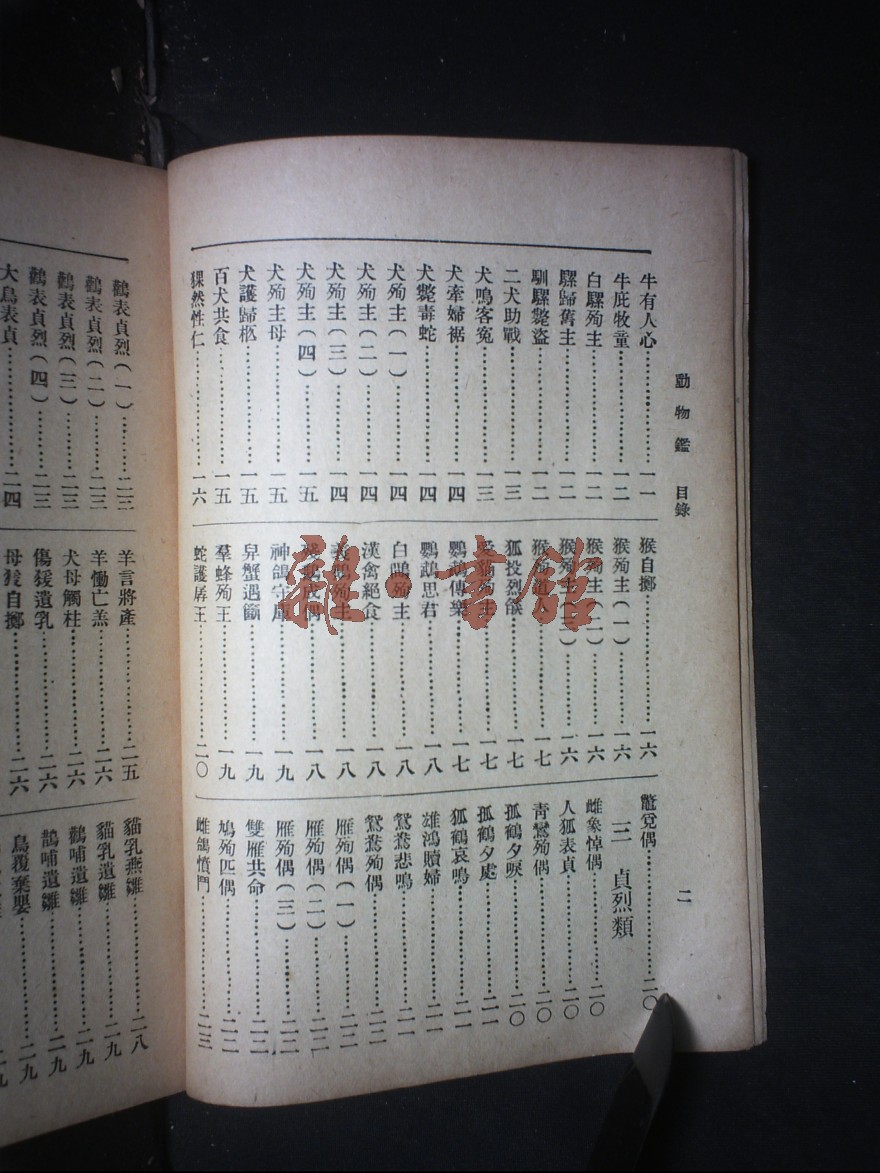 動物鑑 目錄
二
牛有人心……一一
牛庇牧童……一二
白騾殉主……一二
騾歸舊主……一二
馴騾斃盜……一二
二犬助戰……一三
犬鳴客冤……一三
犬牽婦裾……一四
犬斃毒蛇……一四
犬殉主(一)……一四
犬殉主(二)……一四
犬殉主(三)……一四
犬殉主(四)……一五
犬殉主母……一五
犬護歸柩……一五
百犬共食……一五
猓然性仁……一六
猴自擲……一六
猴殉主(一)……一六
猴殉主(二)……一六
猴殉主(三)……一六
猴殉道人……一七
狐投烈燄……一七
愛猫殉主……一七
鸚鵡傳樂……一七
鸚鵡思君……一八
白鷴殉主……一八
漢禽絕食……一八
義鶴殉主……一八
成偶……一八
神鴿守庫……一九
舁蟹遇籪……一九
羣蜂殉王……一九
蛇護孱王……二〇
偶……二〇
三 貞烈類
雌象悼偶……二〇
人狐表貞……二〇
靑鸞殉偶……二〇
孤鶴夕唳……二〇
孤鶴夕處……二一
孤鶴哀鳴……二一
雄鴻贖婦……二一
鴛鴦悲鳴……二一
鴛鴦殉偶……二一
雁殉偶(一)……二二
雁殉偶(二)……二二
雁殉偶(三)……二二
雙雁共命……二二
鳩殉匹偶……二二
雌鴿憤鬥……二三
鸛表貞烈(一)……二三
鸛表貞烈(二)……二三
鸛表貞烈(三)……二三
鸛表貞烈(四)……二三
大鳥表貞……二四
羊言將產……二五
羊慟亡羔……二六
犬母觸柱……二六
傷猨遺乳……二六
母猨自擲……二六
貓乳燕雛……二八
貓乳遺雛……二九
鸛哺遺雛……二九
鵲哺遺雛……二九
鳥覆棄嬰……二九
雅·書館